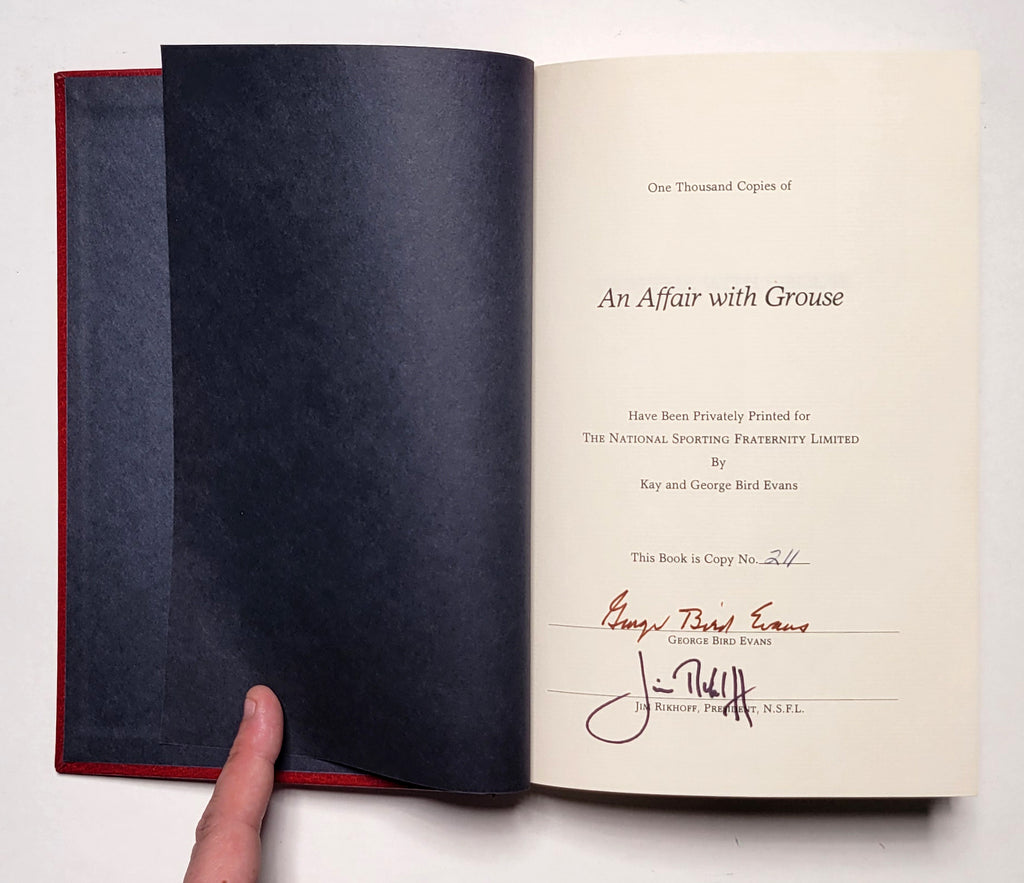 One Thousand Copies of
An Affair with Grouse
Have Been Privately Printed for
THE NATIONAL SPORTING FRATERNITY LIMITED
By
Kay and George Bird Evans
This Book is Copy No. 211
George Bird Evans
GEORGE BIRD EVANS
Jim Rikhoff
JIM RIKHOFF, PRESIDENT, N.S.F.L.